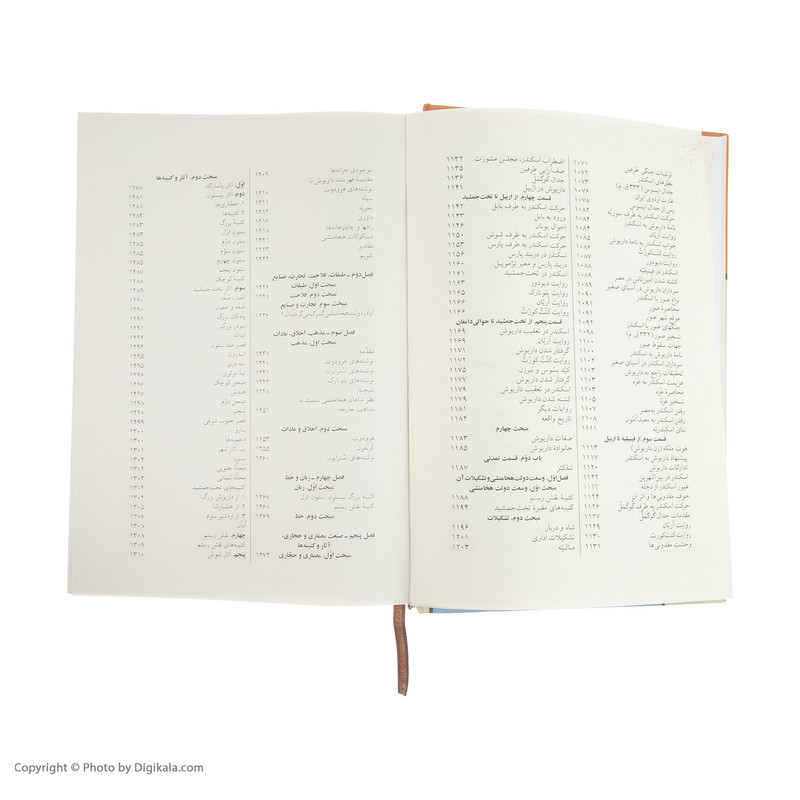 ترتیبات جنگی طرفین ۱۰۷۱
نطق‌های اسکندر ۱۰۷۲
جدال ایسوس (۳۳۳ق.م) ۱۰۷۳
غارت اردوی ایران ۱۰۷۶
پس از جدال ایسوس ۱۰۷۸
حرکت اسکندر به طرف سوریّه ۱۰۸۲
نامهٔ داریوش به اسکندر ۱۰۸۴
روایت آریان ۱۰۸۴
جواب اسکندر به نامهٔ داریوش ۱۰۸۵
روایت کنت‌کورث
روایت دیودور
اسکندر در فینیقیّه
کشته شدن آمین‌تاس در مصر
سرداران داریوش در آسیای صغیر
نزاع صور با اسکندر
محاصرهٔ صور
موقع شهر صور
جنگهای صور با اسکندر
تسخیر صور (۳۳۲ ق. م)
جهات سقوط صور ۱۱۰۰
نامهٔ داریوش به اسکندر ۱۱۰۰
سرداران اسکندر در آسیای صغیر
تحقیقات راجع به داریوش
عزیمت اسکندر به غزه ۱۱۰۳
محاصرهٔ غزّه ۱۱۰۳
تسخیر غزّه ۱۱۰۵
رفتن اسکندر به‌مصر ۱۱۰۷
رفتن اسکندر به معبد آمّون ۱۱۰۸
بنای اسکندریّه ۱۱۱۱
قسمت سوم. از فینیقیه تا اربیل
فوت ملکه (زن داریوش) ۱۱۱۳
پیشنهاد داریوش به اسکندر ۱۱۱۷
تدارکات داریوش ۱۱۲۰
اسکندر در بین‌النهرین
عبور اسکندر از دجله
خوف مقدونی‌ها و اثر آن ۱۱۲۴
حرکت اسکندر به طرف گوگمل ۱۱۲۶
مقدمات جدال گوگمل ۱۱۲۷
روایت آریان ۱۱۲۹
روایت کنت‌کورث ۱۱۳۰
وحشت مقدونی‌ها ۱۱۳۱
اضطراب اسکندر، مجلس مشورت ۱۱۳۲
صف‌آرایی طرفین ۱۱۳۵
جدال گوگمل ۱۱۳۶
داریوش در اربیل ۱۱۴۱
قسمت چهارم. از اربیل تا تخت‌جمشید
حرکت اسکندر به طرف بابل ۱۱۴۲
ورود به بابل ۱۱۴۳
احوال یونان ۱۱۴۶
حرکت اسکندر به طرف شوش ۱۱۵۰
حرکت اسکندر به طرف پارس ۱۱۵۳
اسکندر در دربند پارس ۱۱۵۷
دربند پارس و معبر ترموپیل ۱۱۶۰
اسکندر در تخت‌جمشید ۱۱۶۱
روایت دیودور ۱۱۶۳
روایت پلوتارک ۱۱۶۵
روایت آریان ۱۱۶۶
روایت کنت کورث ۱۱۶۶
قسمت پنجم. از تخت‌جمشید تا حوالی دامغان
اسکندر در تعقیب داریوش ۱۱۶۹
روایت آریان ۱۱۶۹
روایت کنت کورث ۱۱۷۱
گرفتار شدن داریوش ۱۱۷۱
کید بسّوس و نبرزن ۱۱۷۵
گرفتار شدن داریوش ۱۱۷۷
اسکندر در تعقیب داریوش ۱۱۷۹
کشته شدن داریوش ۱۱۷۹
روایات دیگر ۱۱۸۱
تاریخ واقعه ۱۱۸۲
مبحث چهارم
صفات داریوش ۱۱۸۳
خانوادهٔ داریوش ۱۱۸۵
باب دوّم. قسمت تمدنی
تذکّر ۱۱۸۷
فصل اوّل. وسعت دولت هخامنشی و تشکیلات آن
مبحث اوّل. وسعت دولت هخامنشی
کتیبهٔ نقش رستم ۱۱۸۸
کتیبه‌های مقبرهٔ تخت‌جمشید ۱۱۹۴
مبحث دوم. تشکیلات
شاه و دربار ۱۱۹۶
تشکیلات اداری ۱۲۰۱
مالیّه ۱۲۰۳
موجودی خزانه‌ها ۱۲۰۹
مقایسه فهرست داریوش با
نوشته‌های هرودوت ۱۲۱۰
سپاه ۱۲۱۱
بحریّه
داوری
راهها و چاپارخانه‌ها ۱۲۱۸
مسکوکات هخامنشی ۱۲۲۱
مقادیر ۱۲۲۳
تقویم ۱۲۲۴
فصل دوم ـ طبقات، فلاحت، تجارت، صنایع
مبحث اول. طبقات ۱۲۲۶
مبحث دوم. فلاحت ۱۲۳۱
مبحث سوم. تجارت و صنایع
آیا در دولت هخامنشی گمرک می‌گرفته‌اند؟ ۱۲۳۶
فصل سوم ـ مذهب، اخلاق، عادات
مبحث اول. مذهب
مقدّمه ۱۲۳۸
نوشته‌های هرودوت
نوشته‌های استرابون
نوشته‌های پلوتارک
نتیجه
نظر شاهان هخامنشی نسبت به
مذاهب خارجه ۱۲۵۱
مبحث دوم. اخلاق و عادات
هرودوت ۱۲۵۳
کزنفون ۱۲۵۵
نوشته‌های استرابون ۱۲۶۰
فصل چهارم ـ زبان و خط
مبحث اول. زبان
کتیبهٔ بزرگ بیستون، ستون اول ۱۲۶۷
کتیبهٔ نقش رستم ۱۲۶۸
مبحث دوم. خط
فصل پنجم ـ صنعت معماری و حجاری،
آثار و کتیبه‌ها
مبحث اوّل. معماری و حجّاری ۱۲۷۲
مبحث دوم. آثار و کتیبه‌ها
اوّل. آثار پاسارگاد ۱۲۷۷
دوم. آثار بیستون ۱۲۸۱
۱. حجّاری‌ها ۱۲۸۱
۲. کتیبه‌ها ۱۲۸۳
کتیبهٔ بزرگ ۱۲۸۳
ستون اوّل ۱۲۸۳
ستون دوّم ۱۲۸۵
ستون سوم ۱۲۸۵
ستون چهارم ۱۲۸۵
ستون پنجم ۱۲۸۷
سوم. آثار تخت‌جمشید ۱۲۸۸
الف. صُفّه ۱۲۹۰
صُفّه و حصار ۱۲۹۰
پلکان بزرگ ۱۲۹۱
سردر بزرگ ۱۲۹۱
آپدانه
قصر صد ستون
اندرون ۱۲۹۵
سه دری ۱۲۹۵
تپّهٔ مرکزی
قصر کوچک
هدیش ۱۲۹۷
صحن دوّم ۱۲۹۸
تچر ۱۲۹۸
قصر جنوب شرقی ۱۲۹۹
بارو ۱۳۰۰
دخمه‌ها ۱۳۰۰
ب. آثار شهر ۱۳۰۱
ستون ۱۳۰۲
محلهٔ جنوبی ۱۳۰۲
محلهٔ شمالی ۱۳۰۲
کتیبه‌های تخت‌جمشید ۱۳۰۳
۱. از داریوش بزرگ ۱۳۰۴
۲. از خشیارشا ۱۳۰۵
۳. از اردشیر سوم ۱۳۰۷
آبان ۱۳۰۸
چهارم. نقش رستم ۱۳۰۸
کتیبه‌های نقش رستم ۱۳۰۹
پنجم. آثار شوش ۱۳۱۰
Copyright © Photo by Digikala.com